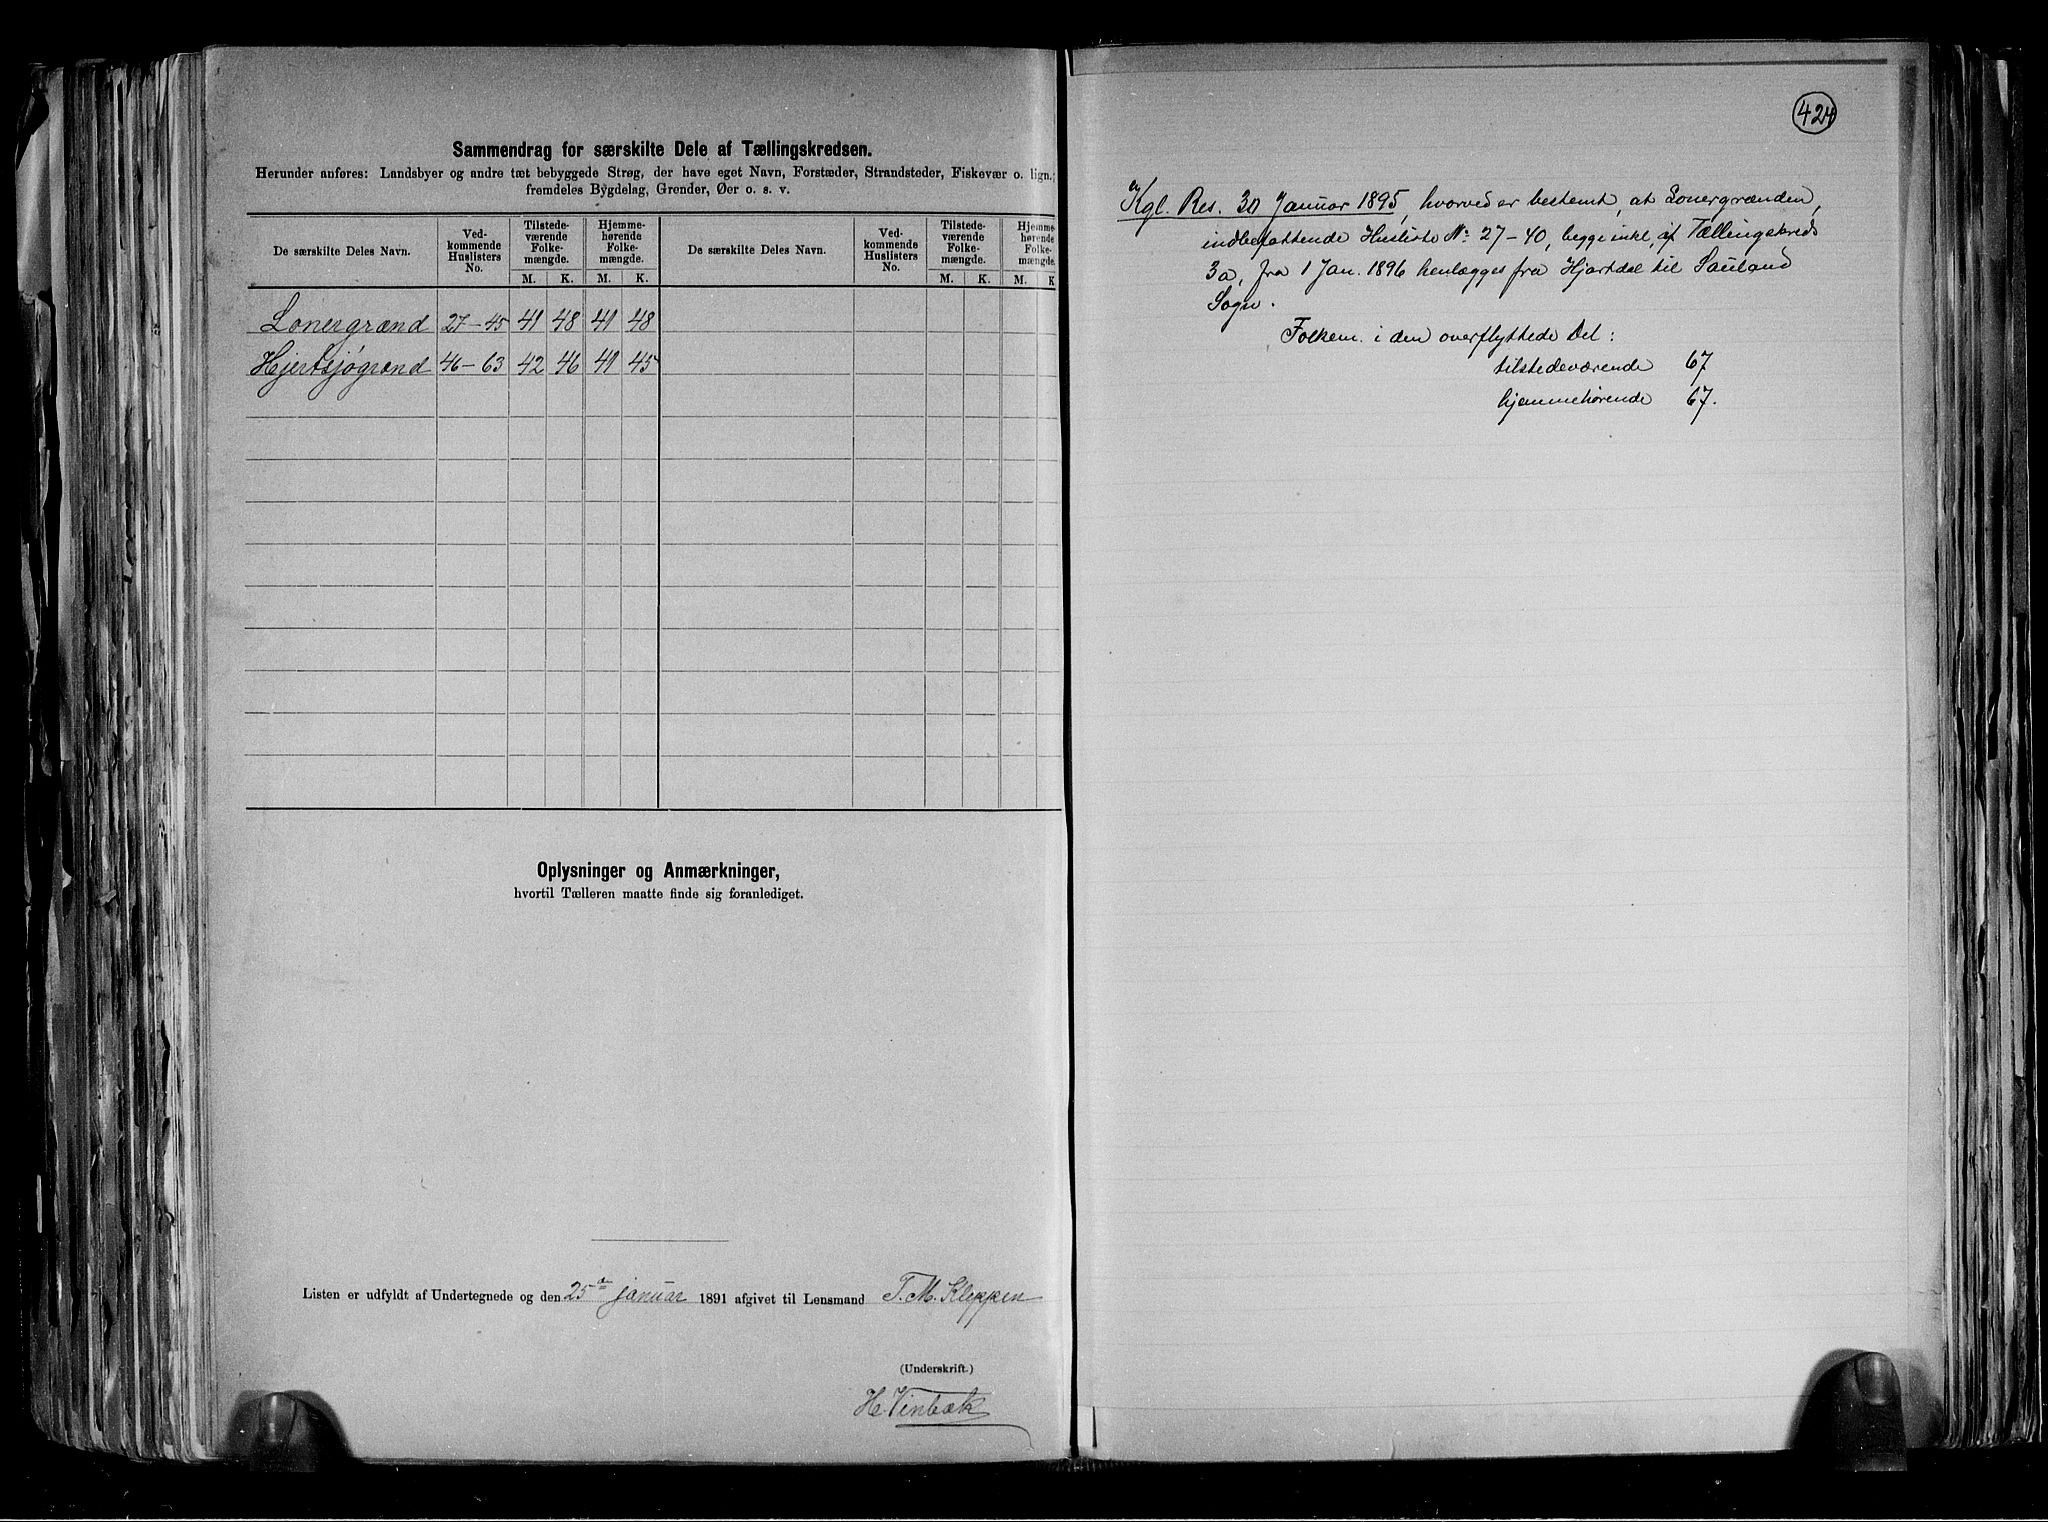 Sammendrag for særskilte Dele af Tællingskredsen.
Herunder anføres: Landsbyer og andre tæt bebyggede Strøg, der have eget Navn, Forstæder, Strandsteder, Fiskevær o. lign.;
fremdeles Bygdelag, Grender, Øer o. s. v.
De særskilte Deles Navn. Ved-kommende Huslisters No. Tilstede-værende Folke-mængde. Hjemme-hørende Folke-mængde. De særskilte Deles Navn. Ved-kommende Huslisters No. Tilstede-værende Folke-mængde. Hjemme-hørende Folke-mængde.
M. K. M. K. M. K. M. K
Lonergrænd 27-45 41 48 41 48
Hjertsjøgrænd 46-63 42 46 41 45
Oplysninger og Anmærkninger,
hvortil Tælleren maatte finde sig foranlediget.
Listen er udfyldt af Undertegnede og den 25de januar 1891 afgivet til Lensmand T. M. Kleppen
(Underskrift.)
H. Vinbæk
424
Kgl. Res. 30 Januar 1895, hvorved er bestemt, at Lonergrænden,
indbefattende Husliste No 27-40, begge inkl., af Tællingskreds
3a, fra 1 Jan. 1896 henlægges fra Hjartdal til Sauland
Sogn.
Folkem. i den overflyttede Del:
tilstedeværende 67
hjemmehørende 67.